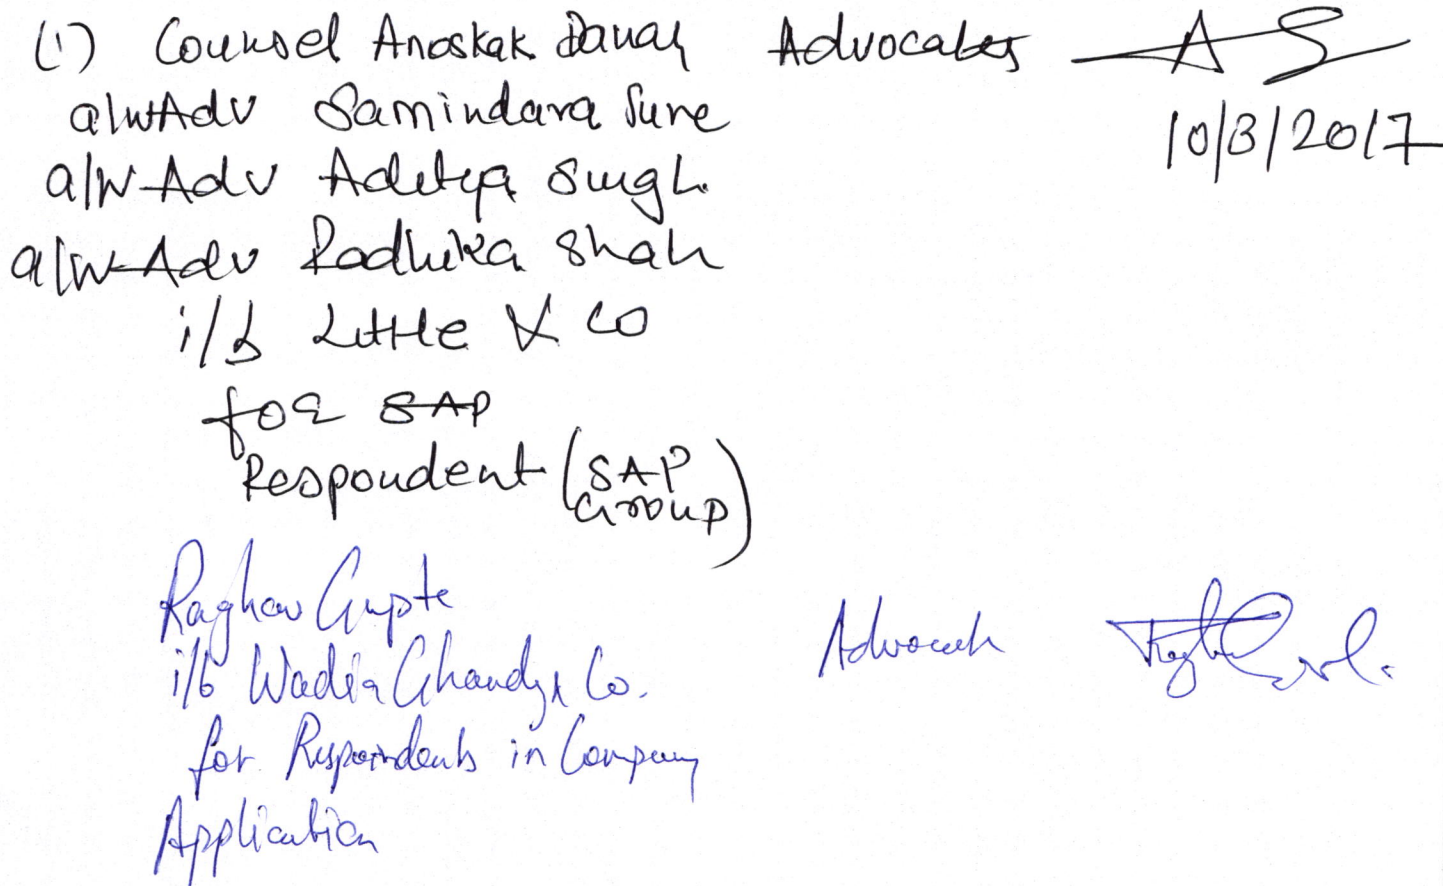 (1) Counsel Anoskak Davar Advocates AS
a/w Adv Samindara Surve
10/3/2017
a/w Adv Aditya Singh
a/w Adv Radhika Shah
i/b Little & Co
for SAP
Respondent (SAP Group)
Raghav Gupte
i/b Wadia Ghandy & Co.
Advocate
for Respondents in Company
Application